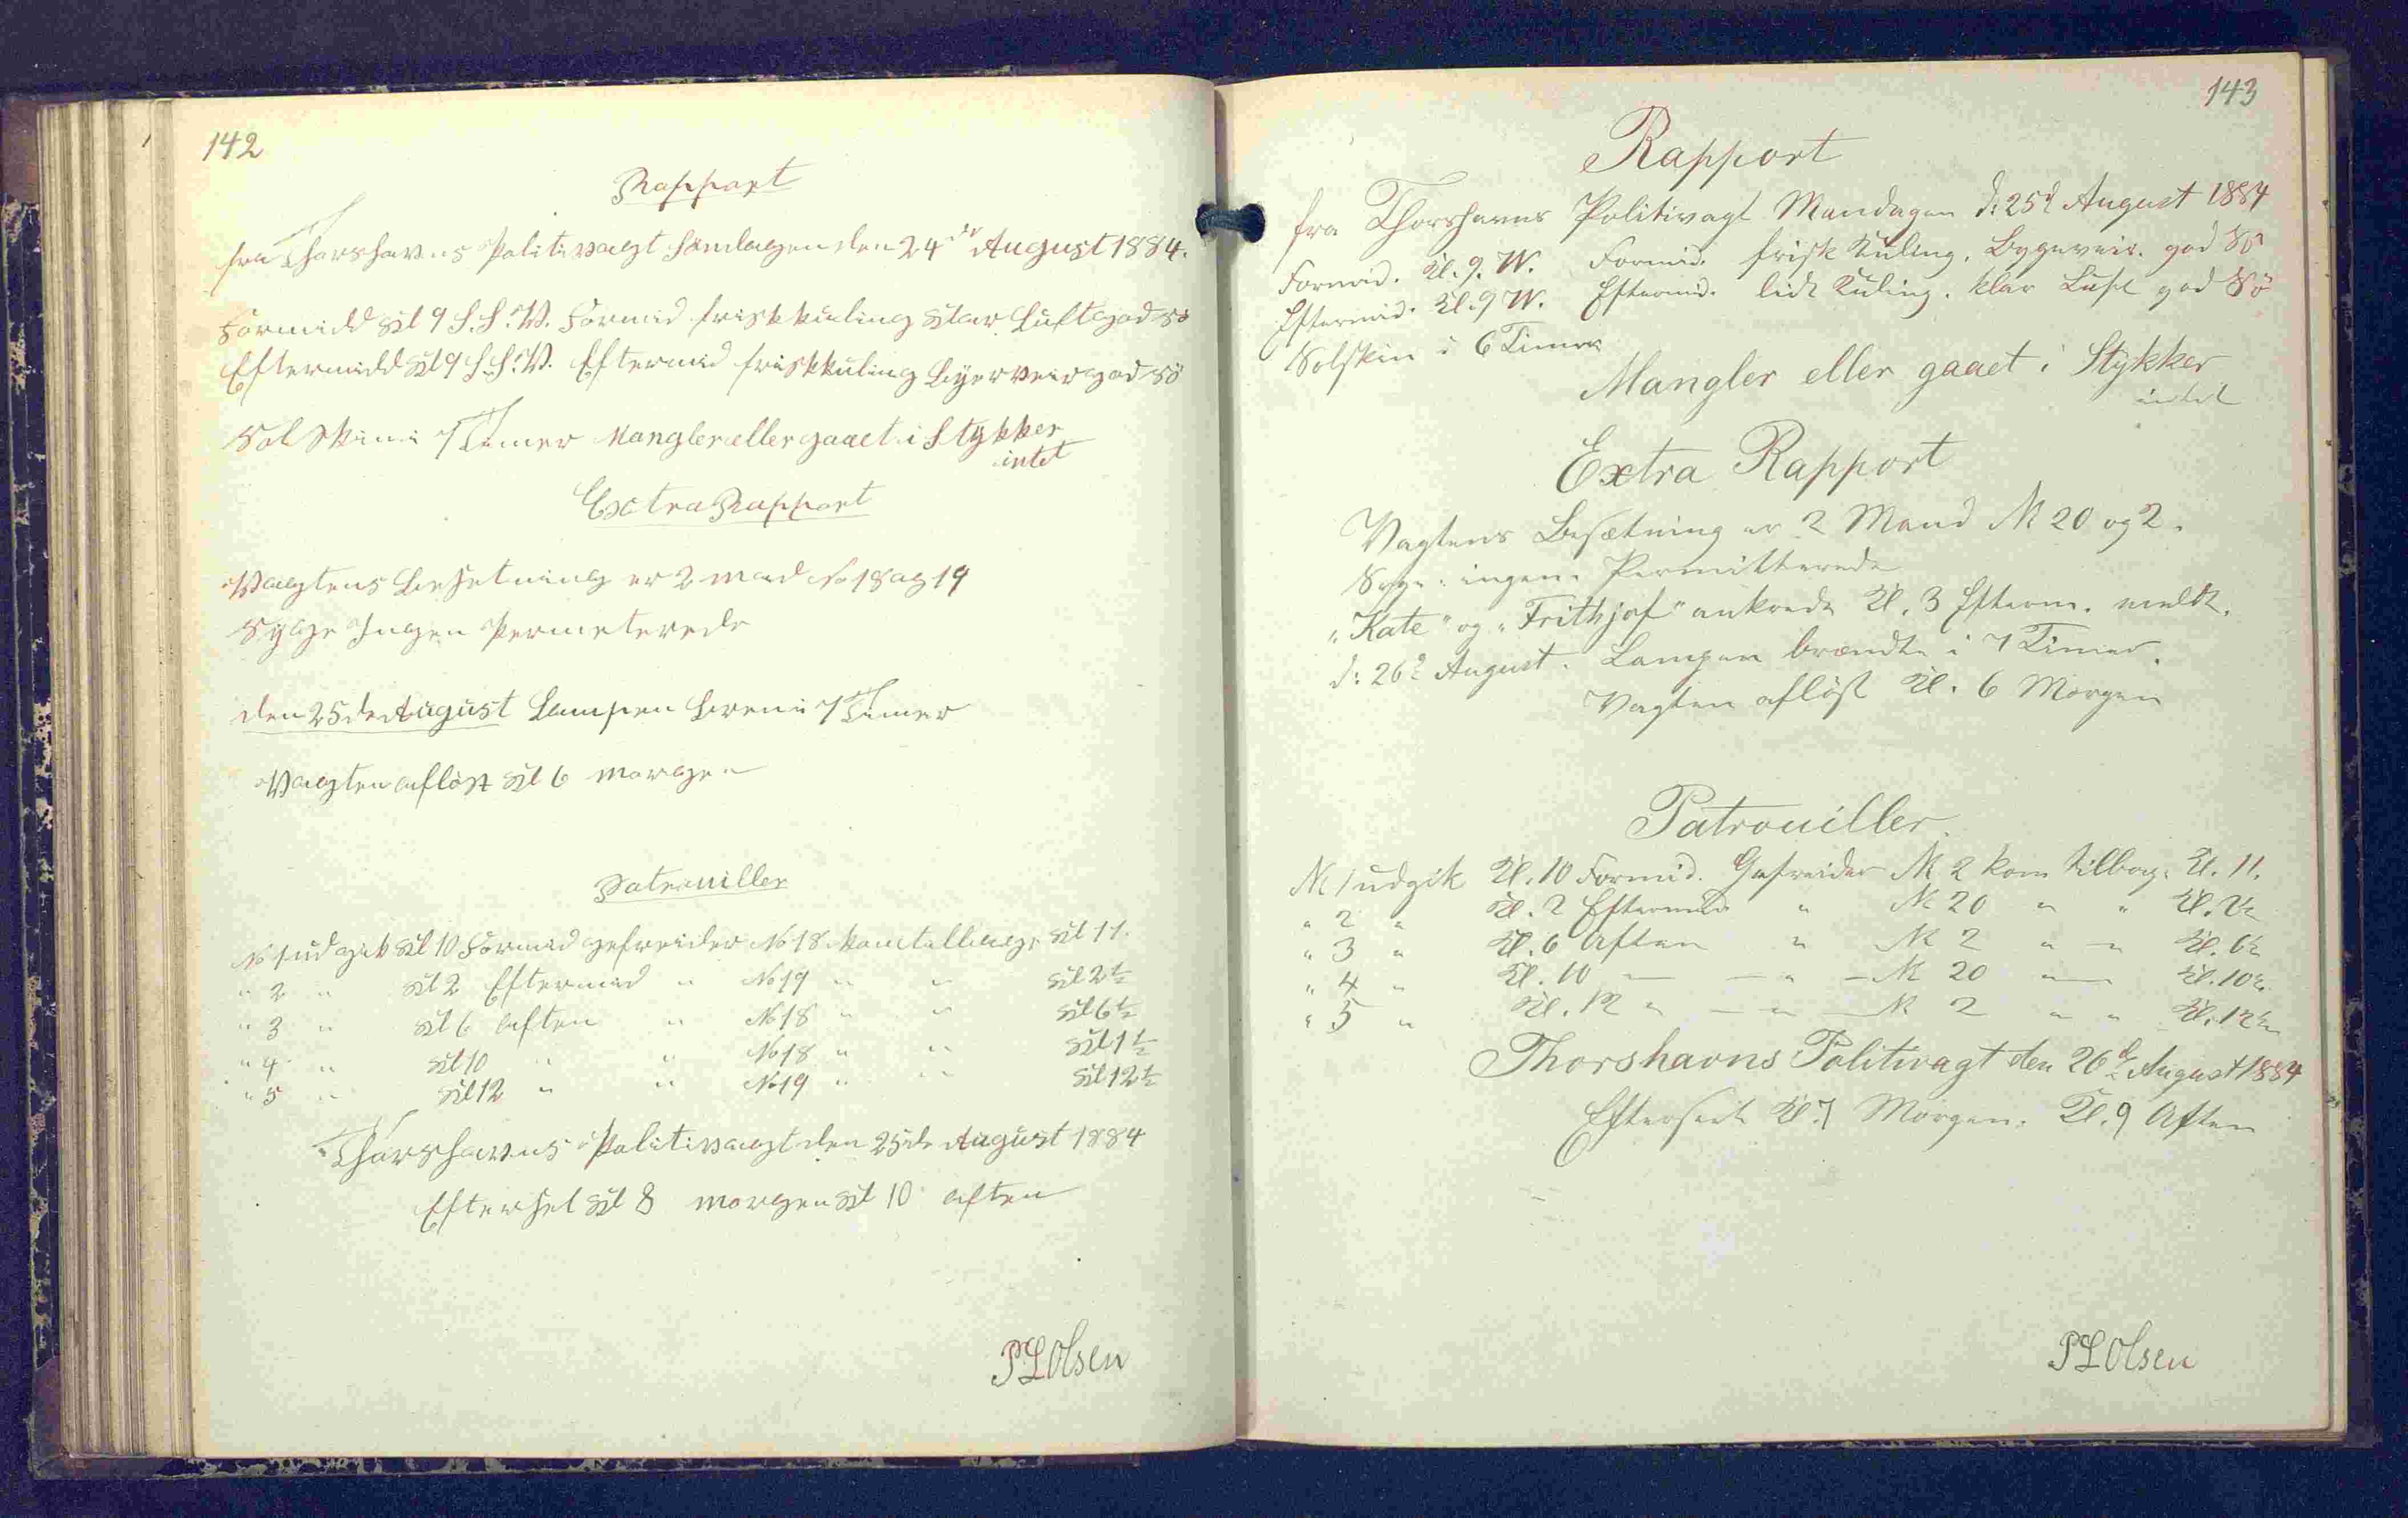 142
Rapport
fra Thorshavns Politivagt Søndagen den 24de August 1884.
Formidd Kl 9 S.S.V. Formid frisk kuling Klar Luft god Sö
Eftermidd Kl 9 S.S.V. Eftermid frisk kuling Byerveir god Sö
Sol Skin i 7 Timer Mangler eller gaaet i Stykker
intet
Extra Rapport
Vagtens Besetning er 2 mad No 18 og 19
Sygge Ingen Permeterede
den 25de August Lampen Bren i 7 Timer
Vagten aflöst Kl 6 morgen
Patrouiller
No 1 udgik Kl 10 Formid gefreider No 18 kom tilbage Kl 11.
" 2 " Kl 2 Eftermid " No 19 " " Kl 2½
" 3 " Kl 6 aften " No 18 " " Kl 6½
" 4 " Kl 10 " " No 18 " " Kl 1½
" 5 " Kl 12 " " No 19 " " Kl 12½
Thorshavns Politivagt den 25de August 1884
Efterset Kl 8 morgen Kl 10 aften
P.L Olsen
143
Rapport
fra Thorshavns Politivagt Mandagen d: 25d August 1884
Formid. Kl. 9. W. Formid. frisk Kuling. Bygeveir. god Sö
Eftermid. Kl. 9 W. Eftermid. lidt Kuling. klar Luft god Sö
Solskin i 6 Timer
Mangler eller gaaet i Stykker
intet
Extra Rapport
Vagtens Besætning er 2 Mand No 20 og 2.
Syge: ingen. Permitterede
"Kate" og "Frithjof" ankrede Kl. 3 Efterm. meldt.
d: 26d August. Lampen brændte i 7 Timer.
Vagten aflöst Kl. 6 Morgen
Patrouiller.
No 1 udgik Kl. 10 Formid. Gefreider No 2 kom tilbag. Kl. 11.
" 2 " Kl. 2 Eftermid. " No 20 " " Kl. 2½
" 3 " Kl. 6 Aften " No 2 " " Kl. 6½
" 4 " Kl. 10 — — " — No 20 " — Kl. 10½
" 5 " Kl. 12 " — " — No 2 " " Kl. 12½
Thorshavns Politivagt den 26d August 1884
Efterseet Kl. 7 Morgen. Kl. 9 Aften
P L Olsen